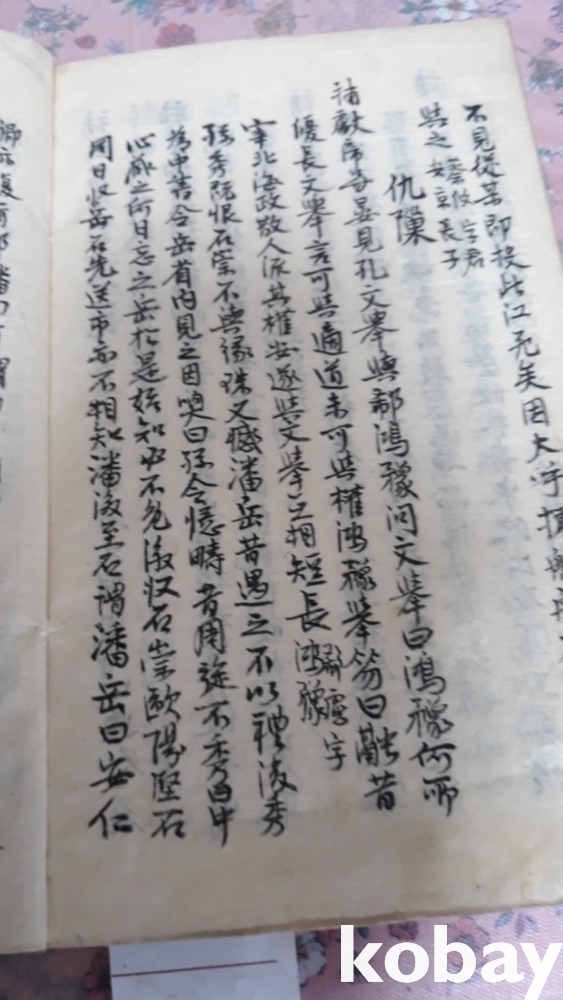 不見從某即投此江死矣因大呼
與之蔡攸字君
女立長子
仇隟
補獻帝嘗晏見孔文擧與郗鴻豫问文擧曰鴻豫何所
優長文擧言可與適道未可與權鴻豫擧笏曰融昔
宰北海政散人流其權安在遂與文擧互相短長鴻豫
字
孫秀既恨石崇不與緑珠又憾潘岳昔遇之不以禮後秀
爲中書令岳省内見之因喚曰孫令憶疇昔周旋不秀曰中
心藏之何日忘之岳於是始知必不免後収石崇歐陽堅石
同日収岳石先送市亦不相知潘後至石謂潘岳曰安仁
卿亦復爾耶潘曰可謂
kobay